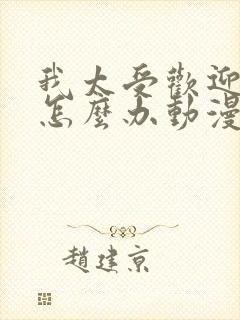 我太受歡迎
怎麼办動漫
趙建京